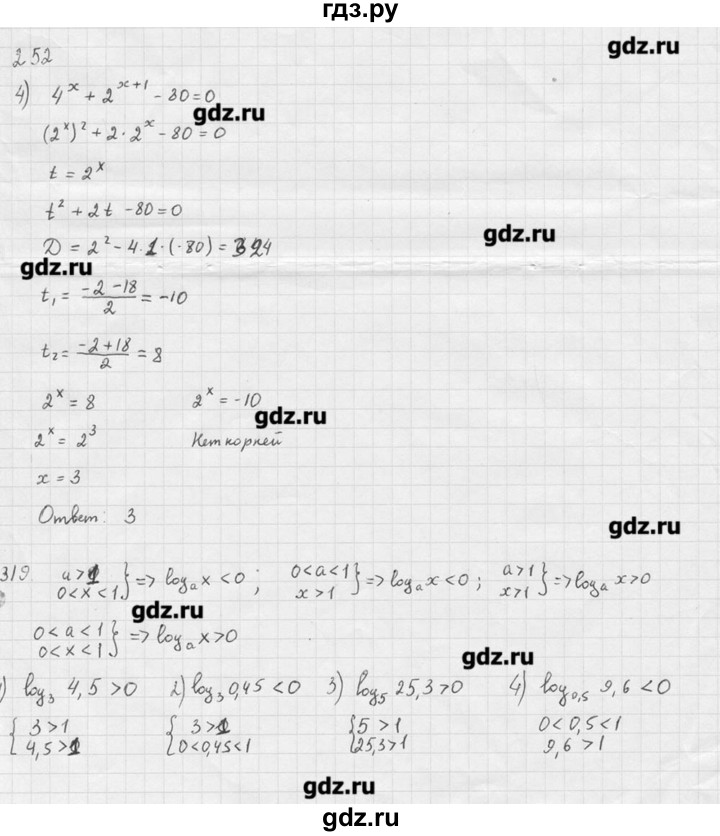 гдз.ру
gdz.ru
252
4) 4^x + 2^(x+1) - 80 = 0
gdz.ru
(2^x)^2 + 2 · 2^x - 80 = 0
t = 2^x
t^2 + 2t - 80 = 0
gdz.ru
D = 2^2 - 4·1·(-80) = 324
gdz.ru
t₁ = (-2 - 18)/2 = -10
t₂ = (-2 + 18)/2 = 8
2^x = 8 2^x = -10
gdz.ru
2^x = 2^3 Нет корней
x = 3
Ответ: 3
gdz.ru
319. a > 1, 0 < x < 1 } => logₐx < 0 ; 0 < a < 1, x > 1 } => logₐx < 0 ; a > 1, x > 1 } => logₐx > 0
gdz.ru
0 < a < 1, 0 < x < 1 } => logₐx > 0
gdz.ru
) log₃ 4,5 > 0 2) log₃ 0,45 < 0 3) log₅ 25,3 > 0 4) log₀,₅ 9,6 < 0
{ 3 > 1 { 3 > 1 { 5 > 1 0 < 0,5 < 1
4,5 > 1 0 < 0,45 < 1 25,3 > 1 9,6 > 1
gdz.ru
gdz.ru